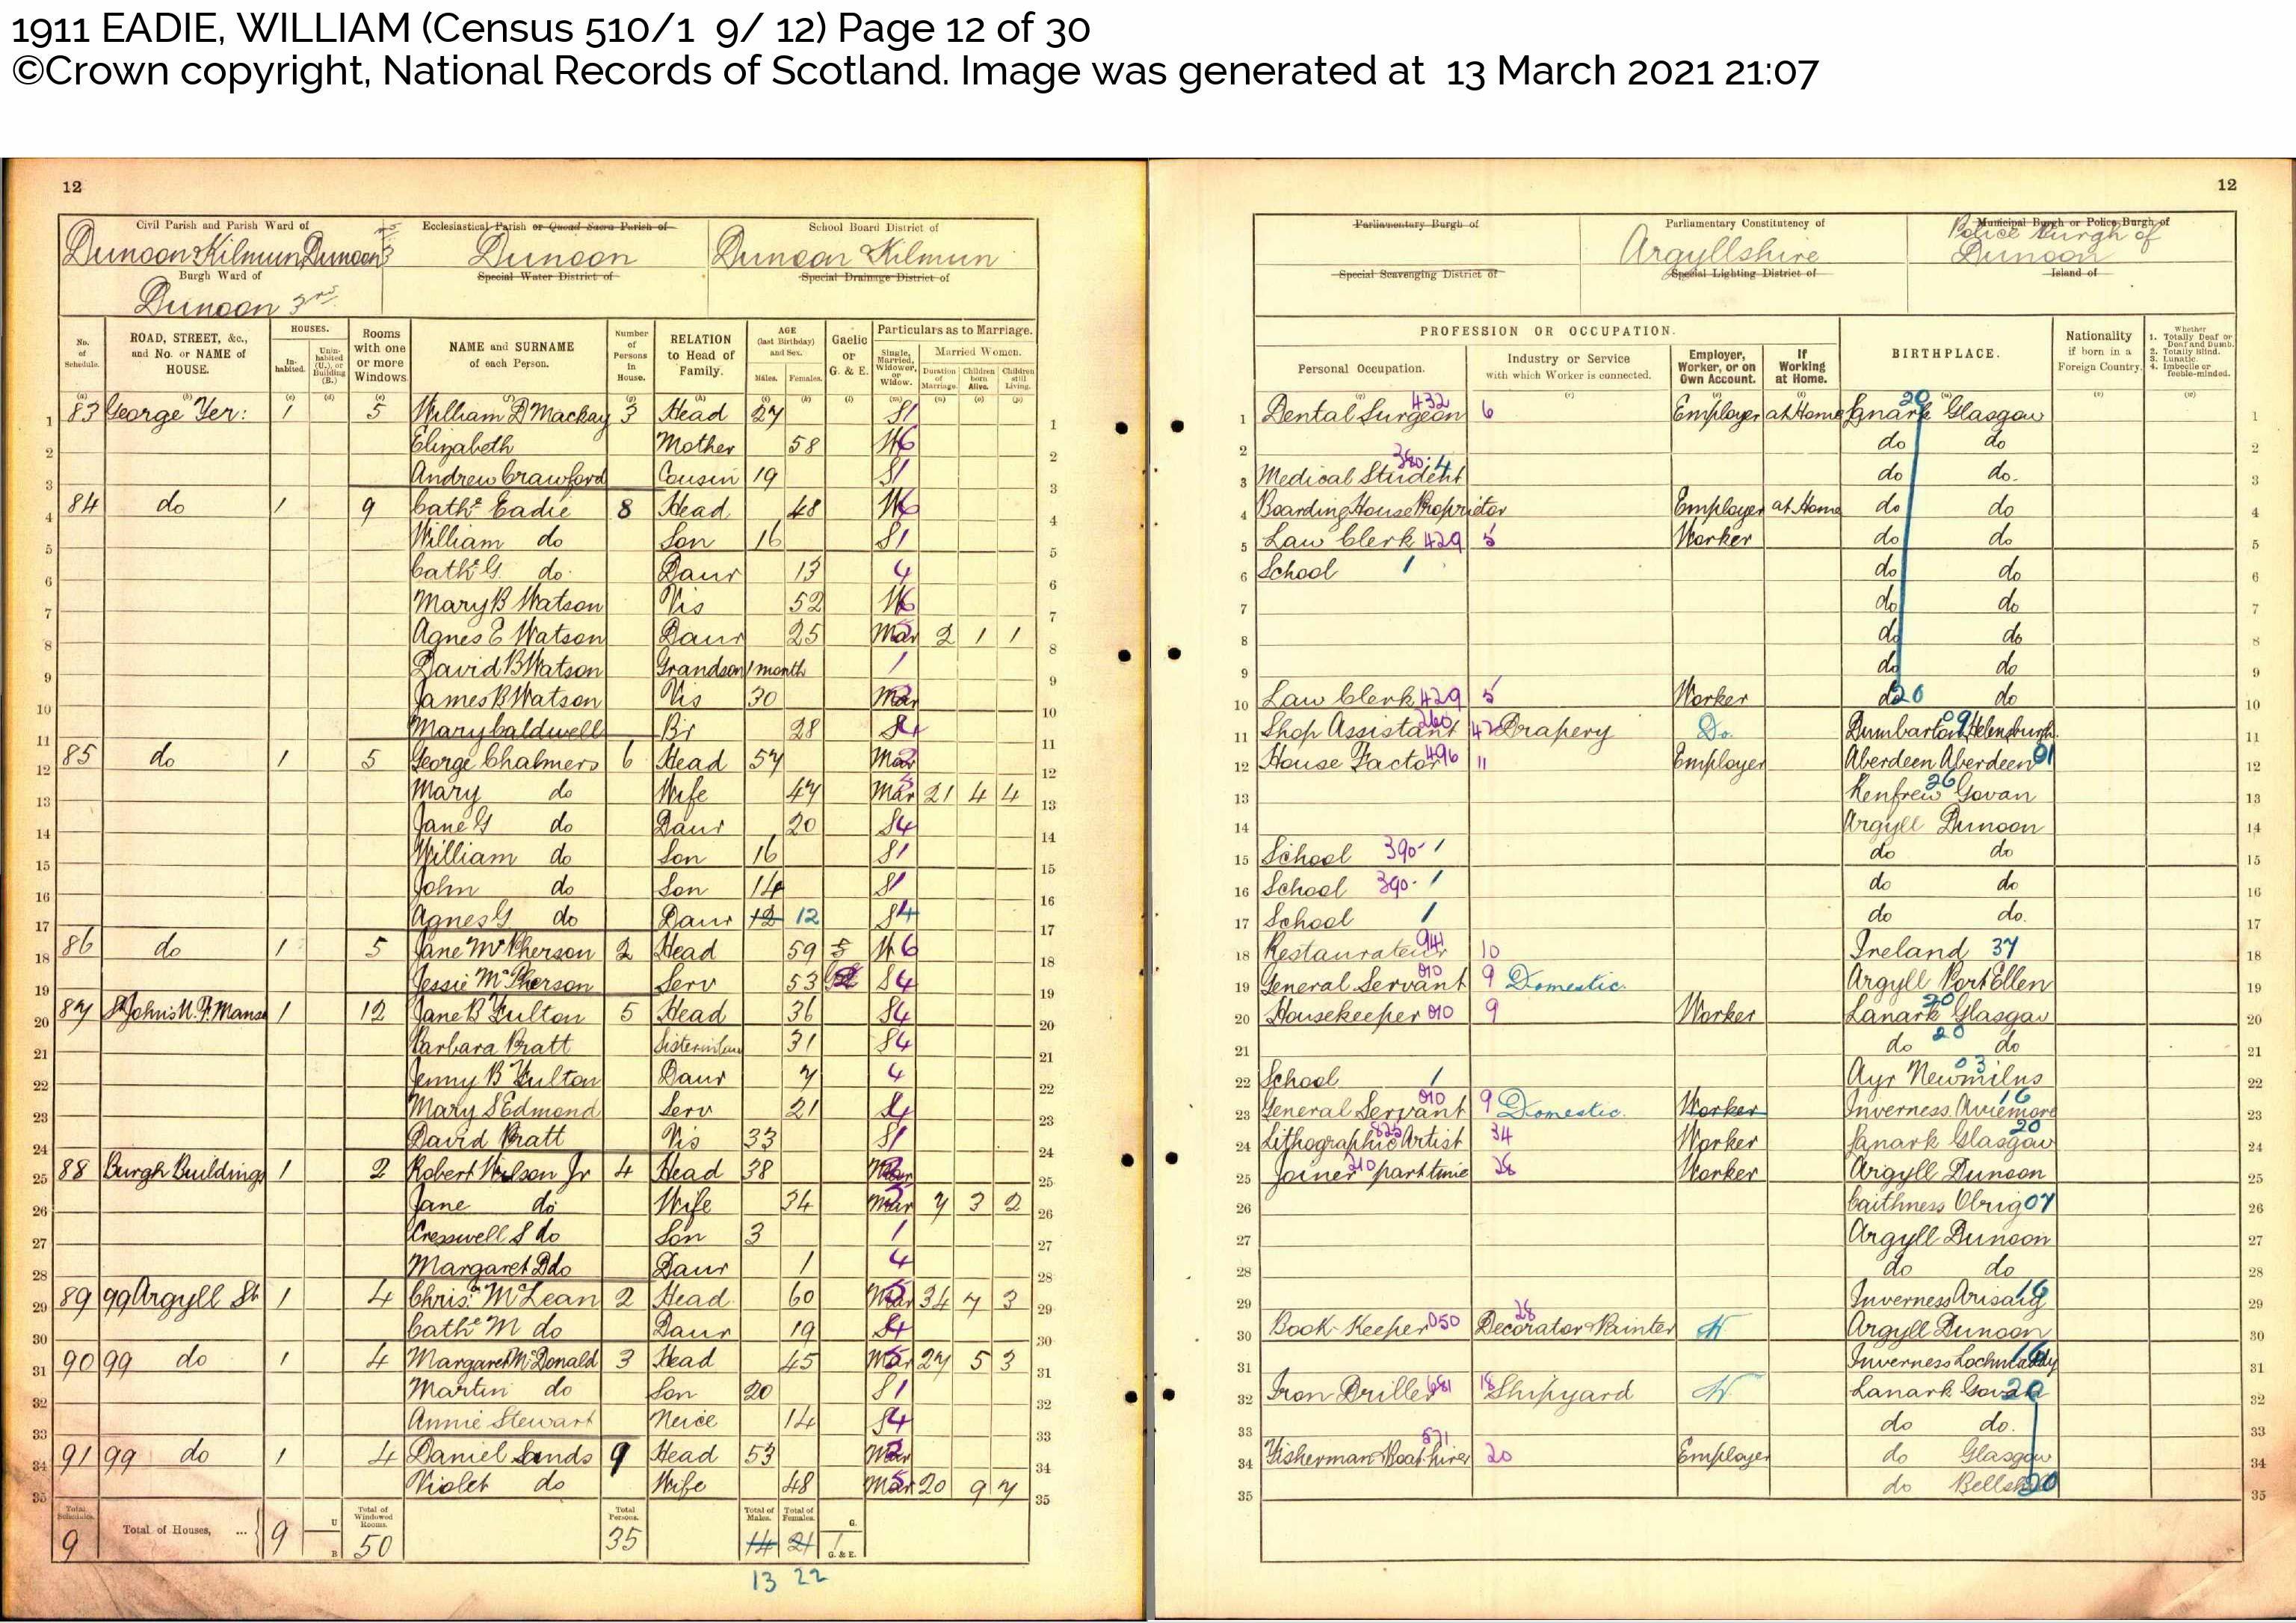 1911 EADIE, WILLIAM (Census 510/1 9/ 12) Page 12 of 30
©Crown copyright, National Records of Scotland. Image was generated at 13 March 2021 21:07
12
Civil Parish and Parish Ward of
Dunoon Kilmun Dunoon
Ecclesiastical Parish or Quoad Sacra Parish of
Dunoon
School Board District of
Dunoon Kilmun
Burgh Ward of
Dunoon 3rd
Special Water District of
Special Drainage District of
No. of Schedule. ROAD, STREET, &c., and No. or NAME of HOUSE. HOUSES. Inhabited. Uninhabited (U.), or Building (B.) Rooms with one or more Windows NAME and SURNAME of each Person. Number of Persons in House. RELATION to Head of Family. AGE (last Birthday) and Sex. Males. Females. Gaelic or G. & E. Particulars as to Marriage. Single, Married, Widower, or Widow. Married Women. Duration of Marriage. Children born Alive. Children still Living.
1 83 George Ter: 1 5 William D Mackay 3 Head 27 S 1
2 Elizabeth Mother 58 W 6
3 Andrew Crawford Cousin 19 S 1
4 84 do 1 9 Cathe Eadie 8 Head 48 W 6
5 William do Son 16 S 1
6 Cathe G. do Daur 13 4
7 Mary B Watson Vis 52 W 6
8 Agnes E Watson Daur 25 Mar 2 1 1
9 David B Watson Grandson 1 month 1
10 James B Watson Vis 30 Mar
11 Mary Caldwell Br 28 S 4
12 85 do 1 5 George Chalmers 6 Head 57 Mar 2
13 Mary do Wife 47 Mar 21 4 4
14 Jane G do Daur 20 S 4
15 William do Son 16 S 1
16 John do Son 14 S 1
17 Agnes G do Daur 12 12 S 4
18 86 do 1 5 Jane McPherson 2 Head 59 W 6
19 Jessie McPherson Serv 53 S 4
20 87 St Johns U.F. Manse 1 12 Jane B Fulton 5 Head 36 S 4
21 Barbara Pratt Sisterinlaw 31 S 4
22 Jenny B Fulton Daur 7 4
23 Mary S Edmond Serv 21 S 4
24 David Pratt Vis 33 S 1
25 88 Burgh Buildings 1 2 Robert Wilson Jr 4 Head 38 Mar
26 Jane do Wife 34 Mar 7 3 2
27 Cresswell S do Son 3 1
28 Margaret D do Daur 1 4
29 89 99 Argyll St 1 4 Chris. McLean 2 Head 60 Mar 34 7 3
30 Cathe M do Daur 19 S 4
31 90 99 do 1 4 Margaret McDonald 3 Head 45 Mar 27 5 3
32 Martin do Son 20 S 1
33 Annie Stewart Neice 14 S 4
34 91 99 do 1 4 Daniel Sands 9 Head 53 Mar
35 Violet do Wife 48 Mar 20 9 7
Total Schedules. 9 Total of Houses, ... 9 U B Total of Windowed Rooms. 50 Total Persons. 35 Total of Males. 14 Total of Females. 21 G. 1 G. & E.
13 22
12
Parliamentary Burgh of
Parliamentary Constituency of
Argyllshire
Municipal Burgh or Police Burgh of
Police Burgh of
Dunoon
Special Scavenging District of
Special Lighting District of
Island of
PROFESSION OR OCCUPATION. Personal Occupation. Industry or Service with which Worker is connected. Employer, Worker, or on Own Account. If Working at Home. BIRTHPLACE. Nationality if born in a Foreign Country. Whether 1. Totally Deaf or Deaf and Dumb. 2. Totally Blind. 3. Lunatic. 4. Imbecile or feeble-minded.
1 Dental Surgeon 432 6 Employer at Home Lanark 20 Glasgow
2 do do
3 Medical Student 380.4 do do.
4 Boarding House Proprietor Employer at Home do do
5 Law Clerk 429 5 Worker do do
6 School 1 do do
7 do do
8 do do
9 do do
10 Law Clerk 429 5 Worker do 20 do
11 Shop Assistant 260 42 Drapery Do. Dumbarton 09 Helensburgh
12 House Factor 496 11 Employer Aberdeen Aberdeen 01
13 Renfrew 26 Govan
14 Argyll Dunoon
15 School 390- 1 do do
16 School 390- 1 do do
17 School 1 do do.
18 Restaurateur 941 10 Ireland 37
19 General Servant 010 9 Domestic. Argyll Port Ellen
20 Housekeeper 010 9 Worker Lanark 20 Glasgow
21 do 20 do
22 School 1 Ayr 03 Newmilns
23 General Servant 010 9 Domestic. Worker Inverness. Aviemore 16
24 Lithographic Artist 825 34 Worker Lanark Glasgow 20
25 Joiner 210 part time 28 Worker Argyll Dunoon
26 Caithness Olrig 07
27 Argyll Dunoon
28 do do
29 Inverness Arisaig 16
30 Book Keeper 050 28 Decorator Painter W Argyll Dunoon
31 Inverness Lochmaddy 16
32 Iron Driller 681 18 Shipyard W Lanark Govan 20
33 do do.
34 Fisherman Boat hirer 571 20 Employer do Glasgow
35 do 20